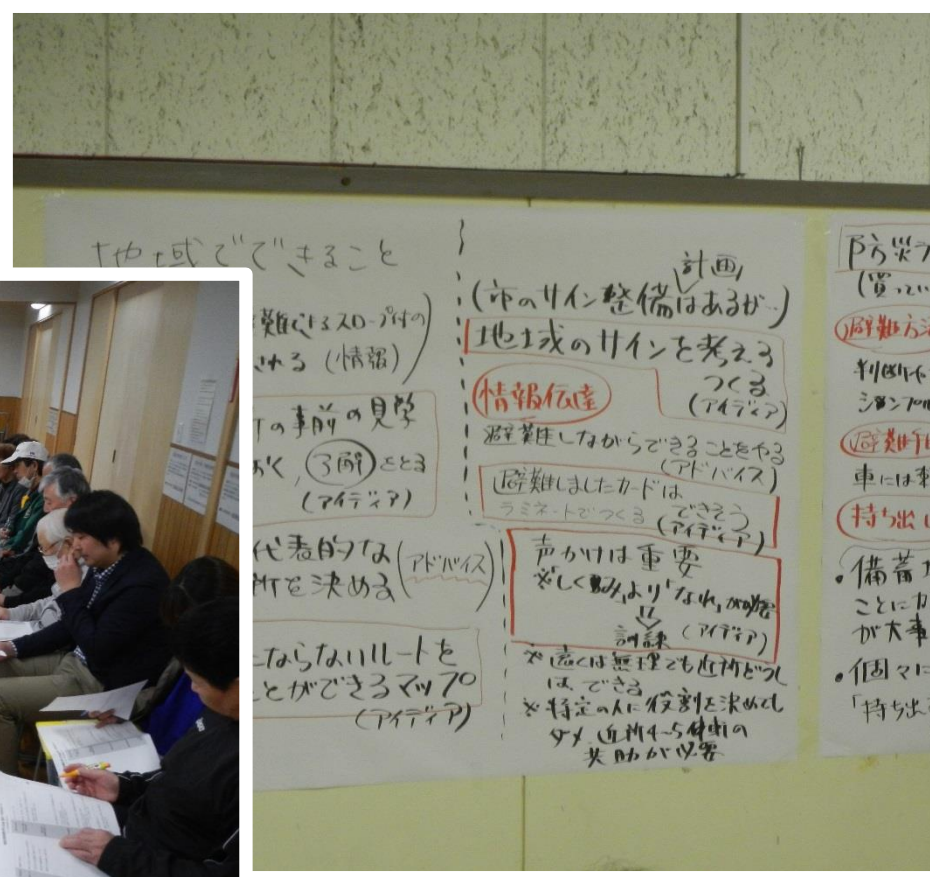 地域でできること
難できるスロープ付の
される（情報）
の事前の見学
おく、了解をとる
（アイディア）
代表的な（アドバイス）
所を決める
にならないルートを
ことができるマップ
（アイディア）
計画
（市のサイン整備はあるが…）
地域のサインを考える
つくる
（アイディア）
情報伝達
避難しながらできることをやる
（アドバイス）
避難しましたカードは
ラミネートでつくる できそう
（アイディア）
声かけは重要
※しくみより「なれ」が必要
訓練（アイディア）
※遠くは無理でも近所どうし
は できる
※特定の人に役割を決めても
ダメ 近所4~5件の
共助が必要
防災
（買ってい
避難方法
判断
避難
車には
持ち出し
・備蓄
ことに
が大事
・個々に
「持ち出